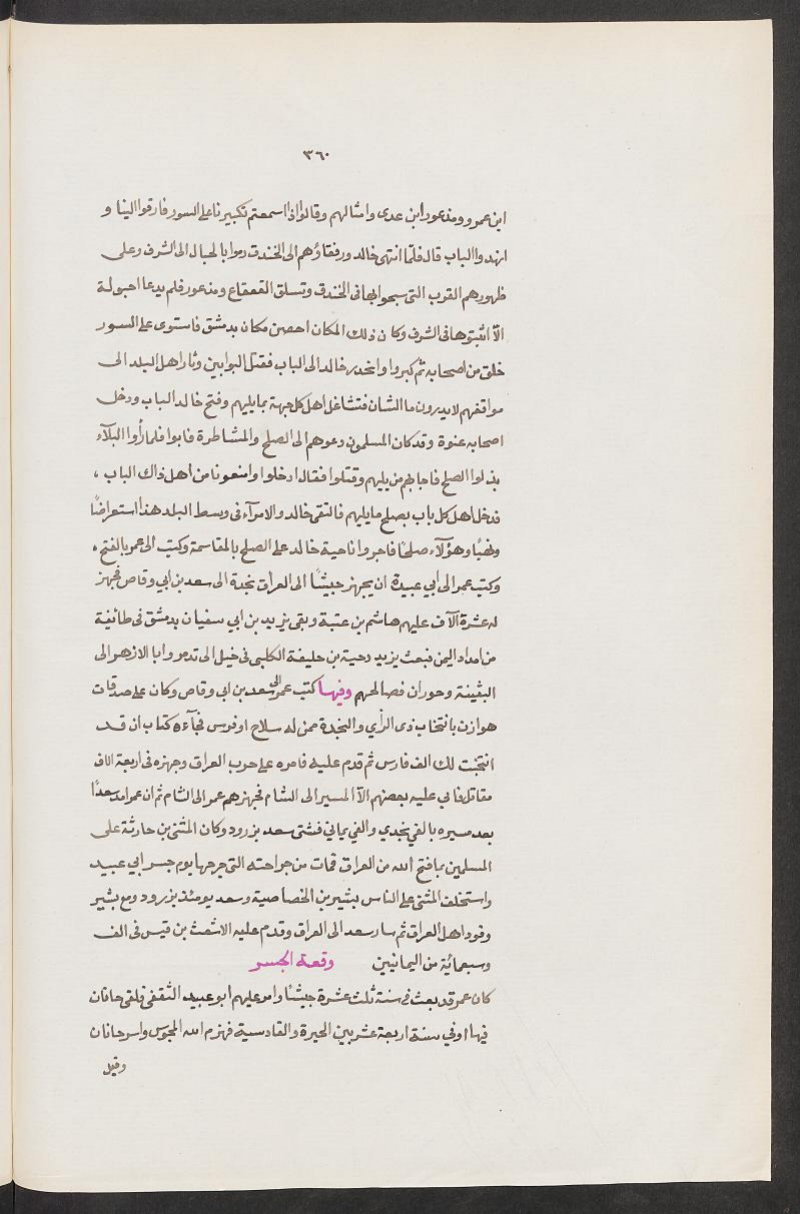 ٣٦٠
ابن عمرو ومذعور ابن عدى وامثالهم وقالوا اذا سمعتم تكبيرنا على السور فارقوا الينا و
انهدوا الباب قال فلمّا انتهى خالد ورفقاؤهم الى الخندق رموا بالحبال الى الشرف وعلى
ظهورهم القرب التى سبحوا بها فى الخندق وتسلق القعقاع ومذعور فلم يدعا احبولة
الّا اثبتوها فى الشرف وكان ذلك المكان احصن مكان بدمشق فاستوى على السور
خلق من اصحابه ثم كبروا وانحدر خالد الى الباب فقتل البوابين وثار اهل البلد الى
مواقفهم لا يدرون ما الشان فتشاغل اهل كل جهة بما يليهم وفتح خالد الباب ودخل
اصحابه عنوة وقد كان المسلمون دعوهم الى الصلح والمشاطرة فابوا فلما رأوا البلآء
بذلوا الصلح فاجابهم من يليهم وقتلوا فقالد ادخلوا وامنعونا من اهل ذاك الباب ،
فدخل اهل كل باب بصلح ما يليهم فالتقى خالد والامرآء فى وسط البلد هذا استعراضًا
ونهبًا وهؤلآء صلحًا فاجروا ناحية خالد على الصلح بالمقاسمة وكتب الى عمر بالفتح ،
وكتب عمر الى أبي عبيدة ان يجهز جيشًا الى العراق نجدة الى سعد بن ابي وقاص فجهز
له عشرة الآف عليهم هاشم بن عتبة وبقى يزيد بن ابي سفيان بدمشق فى طائفة
من امداد اليمن فبعث يزيد دحية بن خليفة الكلبى فى خيل الى تدمر وابا الازهر الى
البثينة وحوران فصالحهم وفيها كتب عمر الى سعد بن ابى وقاص وكان على صدقات
هوازن بانتخاب ذى الرأي والنجدة ممن له سلاح او فرس فجآءه كتاب ان قد
انتخبت لك الف فارس ثم قدم عليه فامره على حرب العراق وجهزه فى اربعة الاف
مقاتل فابي عليه بعضهم الّا المسير الى الشام فجهزهم عمر الى الشام ثم ان عمر امد سعدًا
بعد مسيره بالفي نجدي والفي يماني فشتى سعد بزرود وكان المثنى بن حارثة على
المسلمين بما فتح الله من العراق فمات من جراحته التى جرحها يوم جسر ابي عبيد
واستخلف المثنى على الناس بشير بن الخصاصية وسعد يومئذ بزرود ومع بشير
وفود اهل العراق ثم سار سعد الى العراق وقدم عليه الاشعث بن قيس فى الف
وسبعمائة من اليمانيين وقعة الجسر
كان عمر قد بعث فى سنة ثلث عشرة جيشًا وامر عليهم ابو عبيد الثقفى فلقى جانان
فيها اوفي سنة اربعة عشر بين الحيرة والقادسية فهزم الله المجوس واسر جانان
وقيل